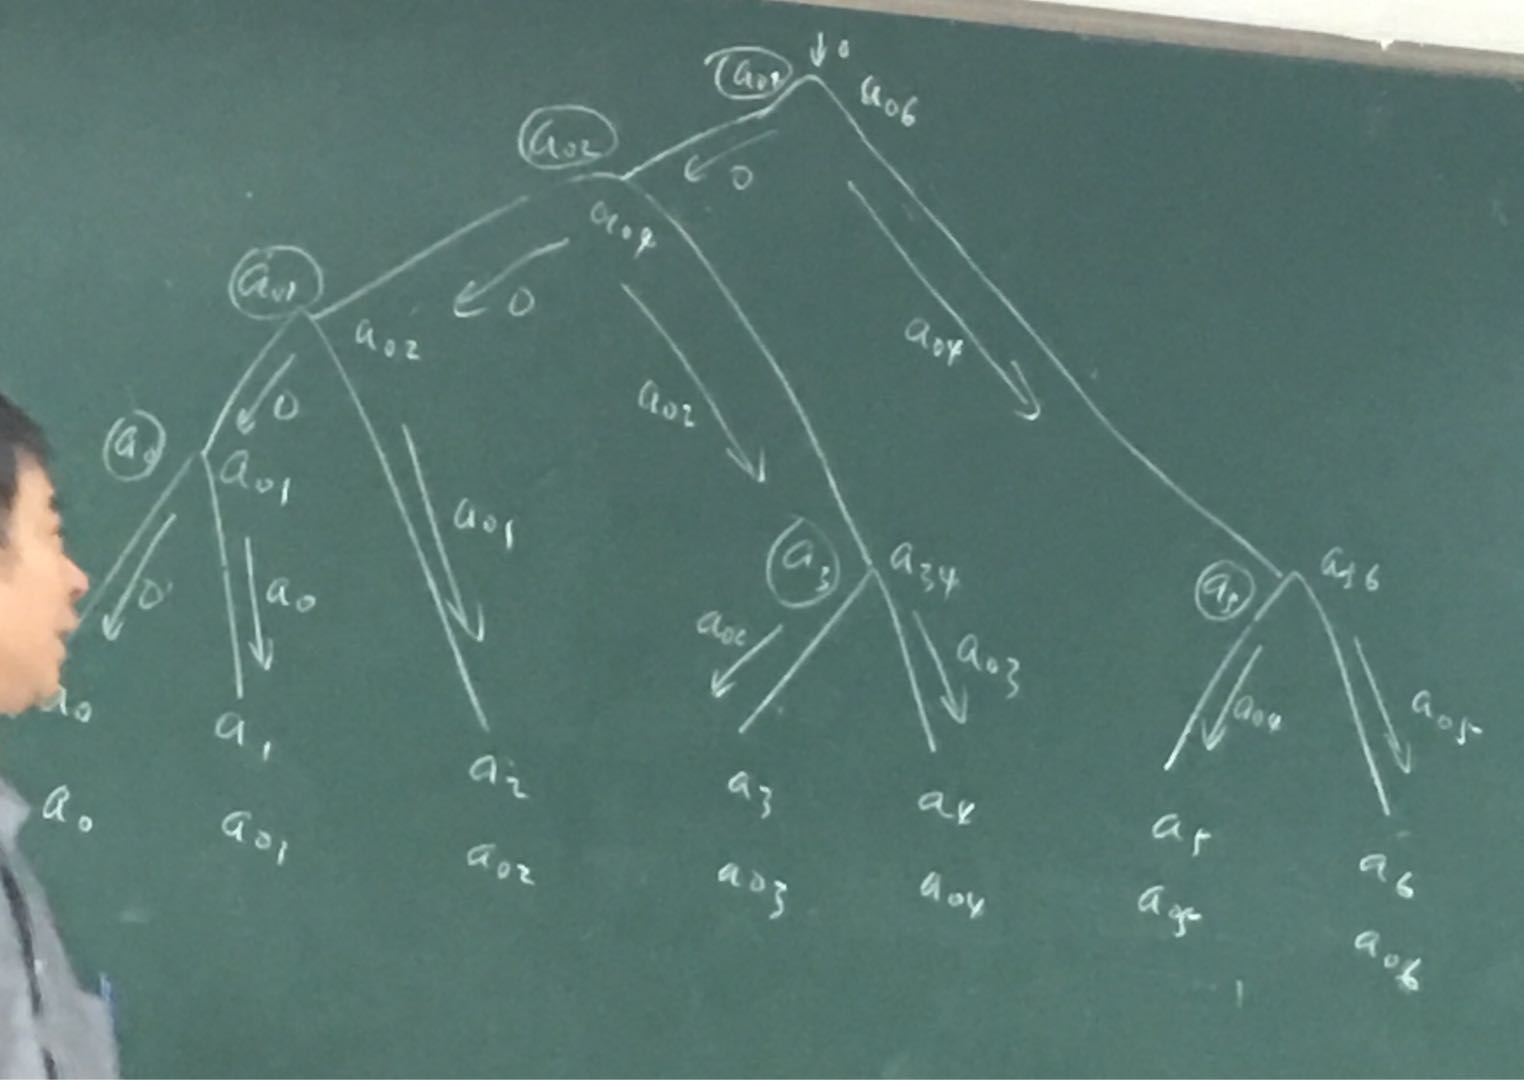 0
a04 a06
a02
0
a04
a01
0
a02
a04
a02
0
a0
a01
a01
a3 a34
a5 a56
0 a0
a02 a03
a04 a05
a0 a1 a2 a3 a4 a5 a6
a0 a01 a02 a03 a04 a05 a06